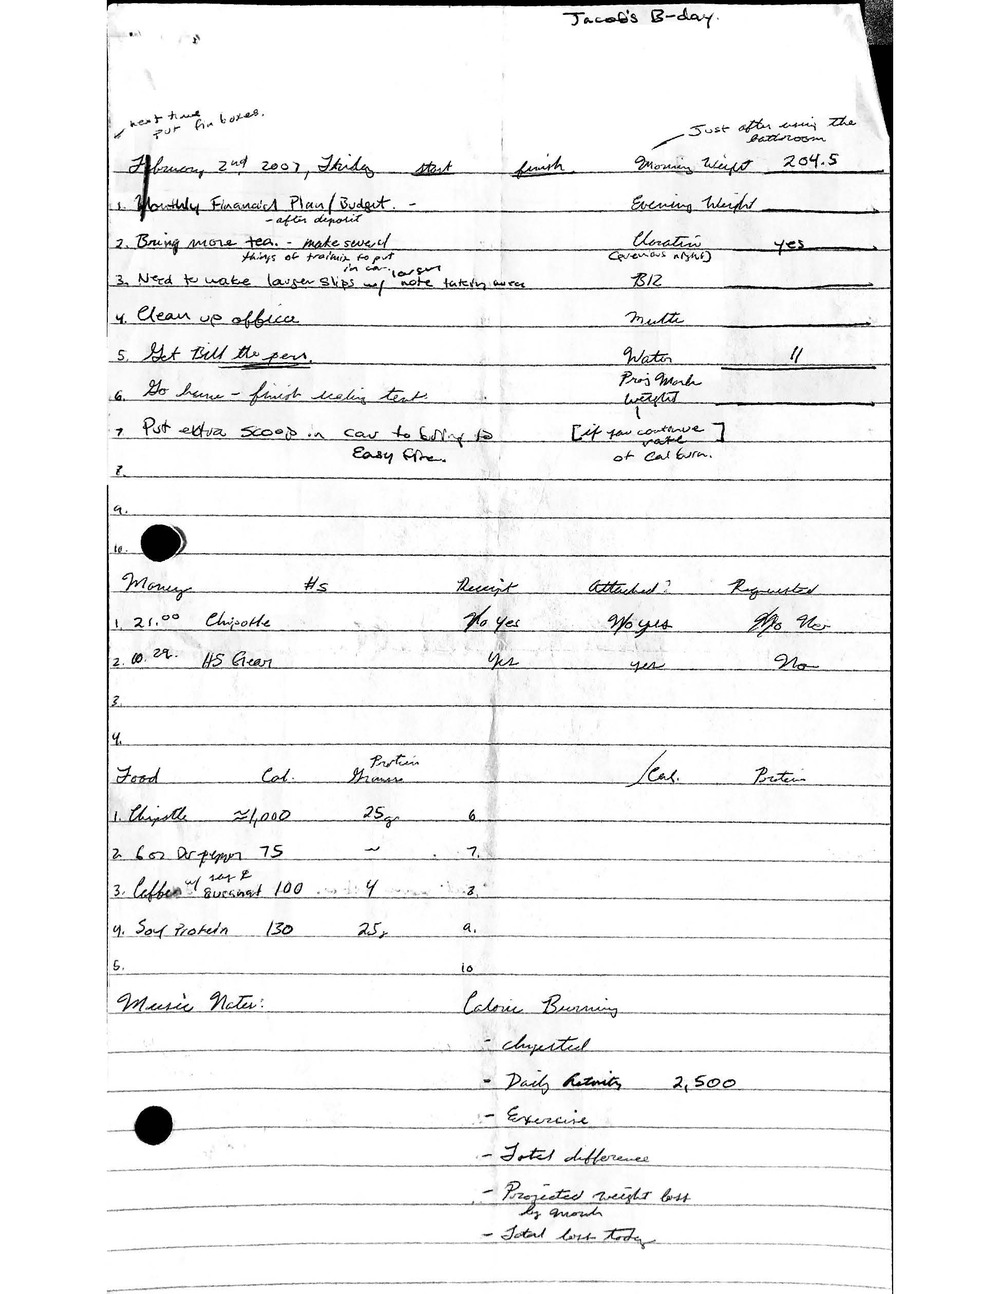 Jacob's B-day.
next time
put fin boxes.
Just after using the
bathroom
February 2nd 2007, Friday start finish Morning Weight 204.5
1. Monthly Financial Plan/Budget. - Evening Weight
- after deposit
2. Bring more tea. - make several Creatin yes
things of to put (previous night)
in car.
larger
3. Need to make larger slips w/ note taking area B12
4. Clean up office Multi
5. Get Bill the pen. Water 11
Proj Month
6. Go home - finish text. weight
7. Put extra scoop in car to bring to [if you continue
Easy Fire. rate ]
of cal burn.
8.
9.
10.
Money #s Receipt Attached? Requested
1. 21.00 Chipotle No Yes No yes No
2. 60.29. HS Gear Yes yes No
3.
4.
Protein
Food Cal. Grams /Cal. Protein
1. Chipotle ≈1,000 25g 6
2. 6 oz Dr pepper 75 ~ 7.
w/ soy &
3. Coffee 100 4 8.
4. Soy Protein 130 25g 9.
5. 10
Music Notes: Calorie Burning
- Ingested
- Daily Activity 2,500
- Exercise
- Total difference
- Projected weight loss
by month
- Total loss today